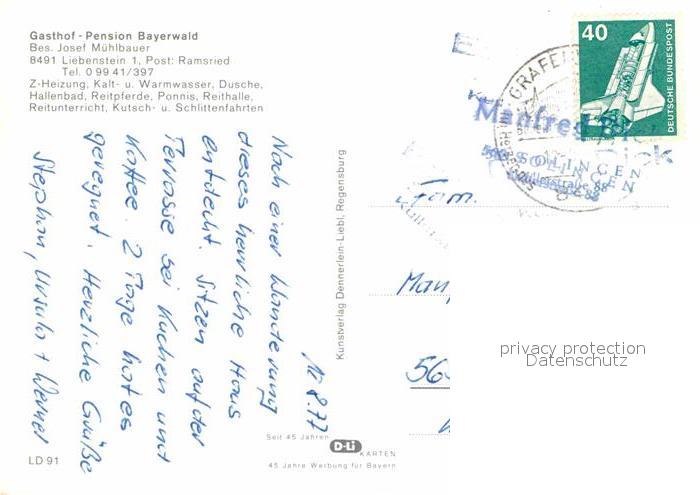 Gasthof - Pension Bayerwald
Bes. Josef Mühlbauer
8491 Liebenstein 1, Post: Ramsried
Tel. 0 99 41/397
Z-Heizung, Kalt- u. Warmwasser, Dusche,
Hallenbad, Reitpferde, Ponnis, Reithalle,
Reitunterricht, Kutsch- u. Schlittenfahrten
Noch einer Wanderung
dieses herrliche Haus
entdeckt. Sitzen auf der
Terrasse bei Kuchen und
Kaffee. 2 Tage hat es
geregnet. Herzliche Grüße
Stephan, Ursula + Werner
8.77
Kunstverlag Dennerlein-Liebl, Regensburg
Seit 45 Jahren
D-Li
KARTEN
45 Jahre Werbung für Bayern
LD 91
40
DEUTSCHE BUNDESPOST
GRAFEN
Manfred
SOLINGEN
Fam.
Man
56
privacy protection
Datenschutz